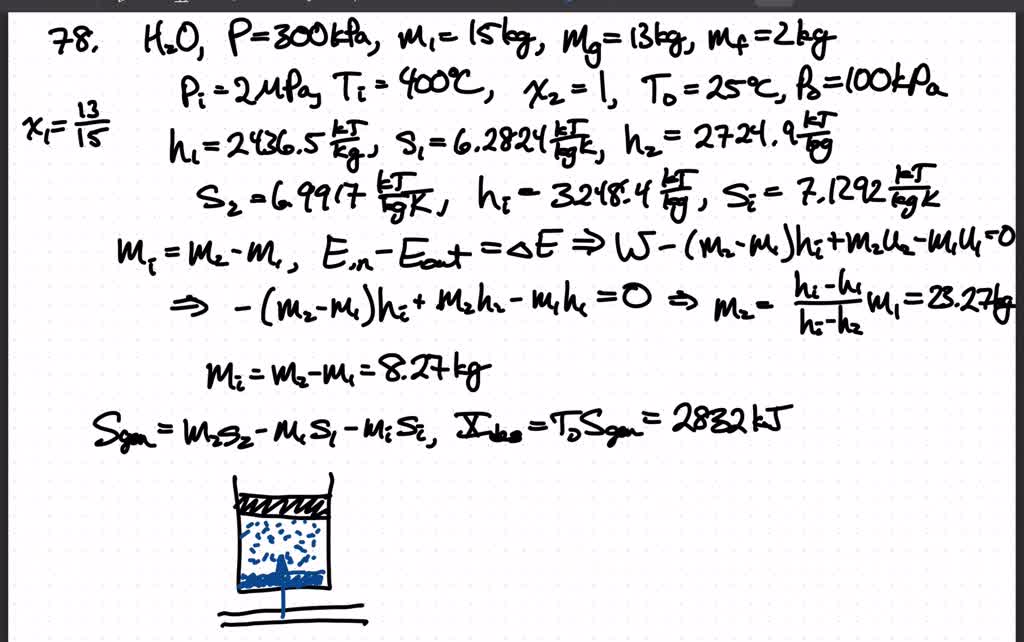 78. H₂O, P=300kPa, m₁=15kg, mg=13kg, mf=2kg
Pi=2MPa, Ti=400°C, x₂=1, T₀=25°C, P₀=100kPa
x₁=13/15
h₁=2436.5 kJ/kg, s₁=6.2824 kJ/kgK, h₂=2724.9 kJ/kg
s₂=6.9917 kJ/kgK, hi=3248.4 kJ/kg, si=7.1292 kJ/kgK
mi=m₂-m₁, Ein-Eout=ΔE ⇒ W-(m₂-m₁)hi+m₂u₂-m₁u₁=0
⇒ -(m₂-m₁)hi+m₂h₂-m₁h₁=0 ⇒ m₂=(hi-h₁)/(hi-h₂) m₁=23.27kg
mi=m₂-m₁=8.27kg
Sgen=m₂s₂-m₁s₁-misi, Xdes=T₀Sgen=2832kJ